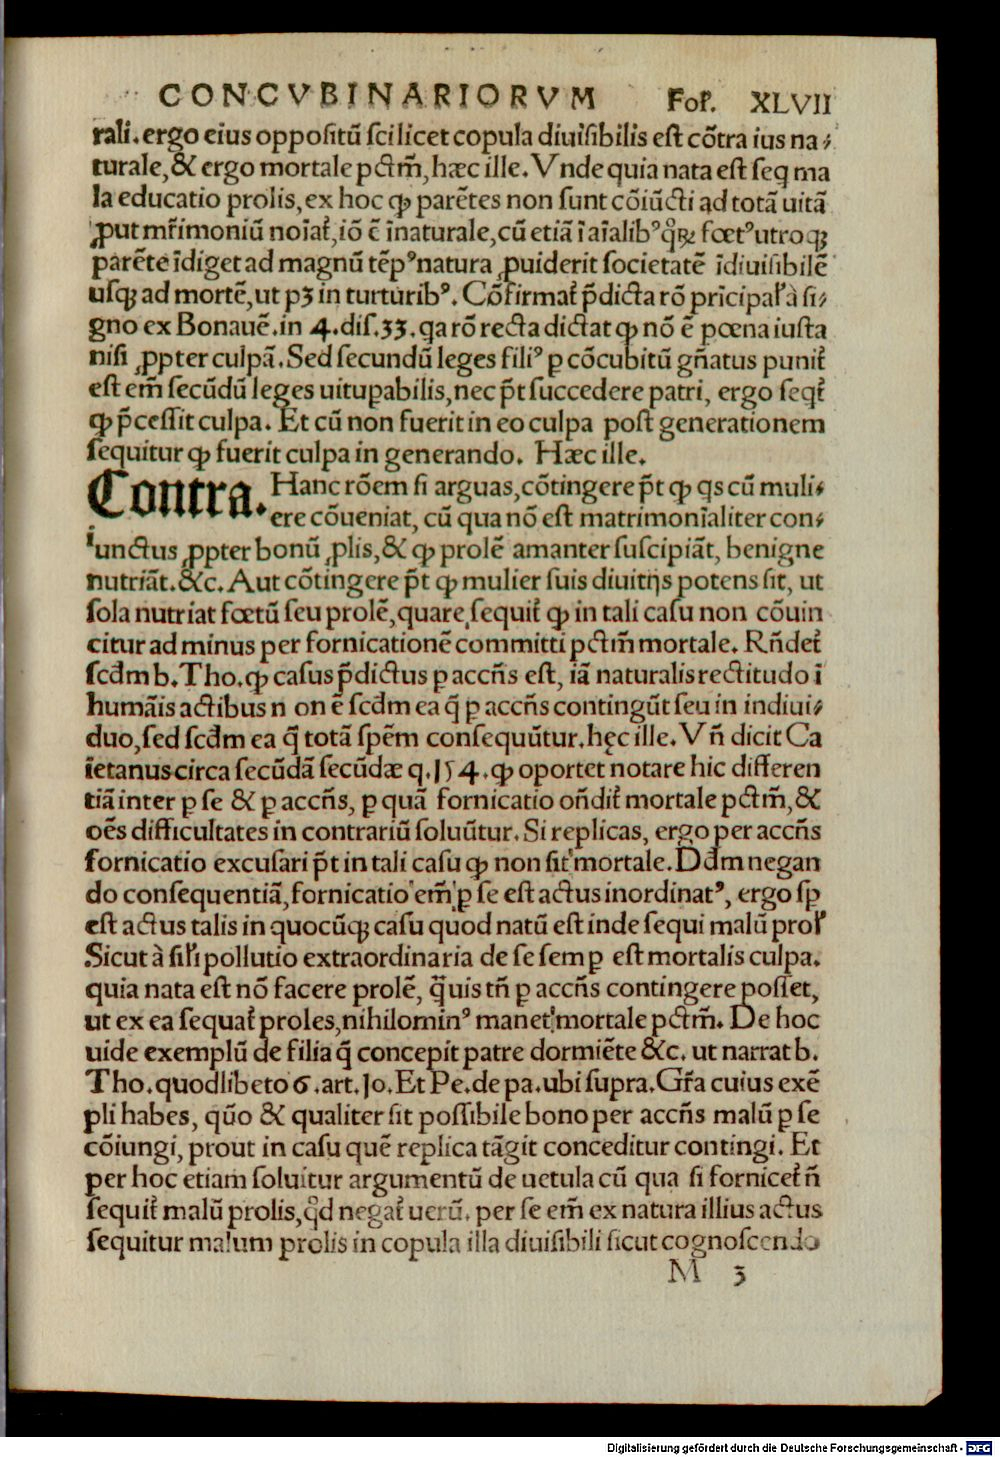 CONCVBINARIORVM Fol. XLVII
rali. ergo eius oppositũ scilicet copula diuisibilis est cõtra ius na⸗
turale, & ergo mortale pctm̃, hæc ille. Vnde quia nata est seq ma
la educatio prolis, ex hoc ꝙ parẽtes non sunt cõiũcti ad totã uitã
ꝓut mr̃imoniũ noĩat᷑, iõ ẽ ĩnaturale, cũ etiã ĩ aĩalibꝰ qͦꝝ fœtꝰ utroqꝫ
parẽte ĩdiget ad magnũ tẽpꝰ natura ꝓuiderit societatẽ ĩdiuisibilẽ
usqꝫ ad mortẽ, ut pꝫ in turturibꝰ. Cõfirmat᷑ p̃dicta rõ prĩcipal᷑ à si⸗
gno ex Bonauẽ. in 4. dis. 33. qa rõ recta dictat ꝙ nõ ẽ pœna iusta
nisi ꝓpter culpã. Sed secundũ leges filiꝰ p cõcubitũ gñatus punit᷑
est em̃ secũdũ leges uitupabilis, nec p̃t succedere patri, ergo seqt᷑
ꝙ p̃cessit culpa. Et cũ non fuerit in eo culpa post generationem
sequitur ꝙ fuerit culpa in generando. Hæc ille.
Contra. Hanc rõem si arguas, cõtingere p̃t ꝙ qs cũ muli⸗
ere cõueniat, cũ qua nõ est matrimonialiter con⸗
iunctus ꝓpter bonũ ꝓlis, & ꝙ prolẽ amanter suscipiãt, benigne
nutriãt. &c. Aut cõtingere p̃t ꝙ mulier suis diuitijs potens sit, ut
sola nutriat fœtũ seu prolẽ, quare sequit᷑ ꝙ in tali casu non cõuin
citur ad minus per fornicationẽ committi pctm̃ mortale. Rñdet᷑
scd̃m b. Tho. ꝙ casus p̃dictus p accñs est, iã naturalis rectitudo ĩ
humãis actibus n on ẽ scd̃m ea q̃ p accñs contingũt seu in indiui⸗
duo, sed scd̃m ea q̃ totã spẽm consequũtur. hęc ille. Vñ dicit Ca
ietanus circa secũdã secũdæ q. 154. ꝙ oportet notare hic differen
tiã inter p se & p accñs, p quã fornicatio oñdit᷑ mortale pctm̃, &
oẽs difficultates in contrariũ soluũtur. Si replicas, ergo per accñs
fornicatio excusari p̃t in tali casu ꝙ non sit mortale. Dd̃m negan
do consequentiã, fornicatio em̃ p se est actus inordinatꝰ, ergo sp
est actus talis in quocũqꝫ casu quod natũ est inde sequi malũ prol᷑
Sicut à sil᷑i pollutio extraordinaria de se semp est mortalis culpa.
quia nata est nõ facere prolẽ, q̃uis tñ p accñs contingere posset,
ut ex ea sequat᷑ proles, nihilominꝰ manet mortale pctm̃. De hoc
uide exemplũ de filia q̃ concepit patre dormiẽte &c. ut narrat b.
Tho. quodlibeto 6. art. 10. Et Pe. de pa. ubi supra. Gr̃a cuius exẽ
pli habes, quõ & qualiter sit possibile bono per accñs malũ p se
cõiungi, prout in casu quẽ replica tãgit conceditur contingi. Et
per hoc etiam soluitur argumentũ de uetula cũ qua si fornicet᷑ ñ
sequit᷑ malũ prolis, qͦd negat᷑ uerũ. per se em̃ ex natura illius actus
sequitur malum prolis in copula illa diuisibili sicut cognoscendo
M 3
Digitalisierung gefördert durch die Deutsche Forschungsgemeinschaft - DFG